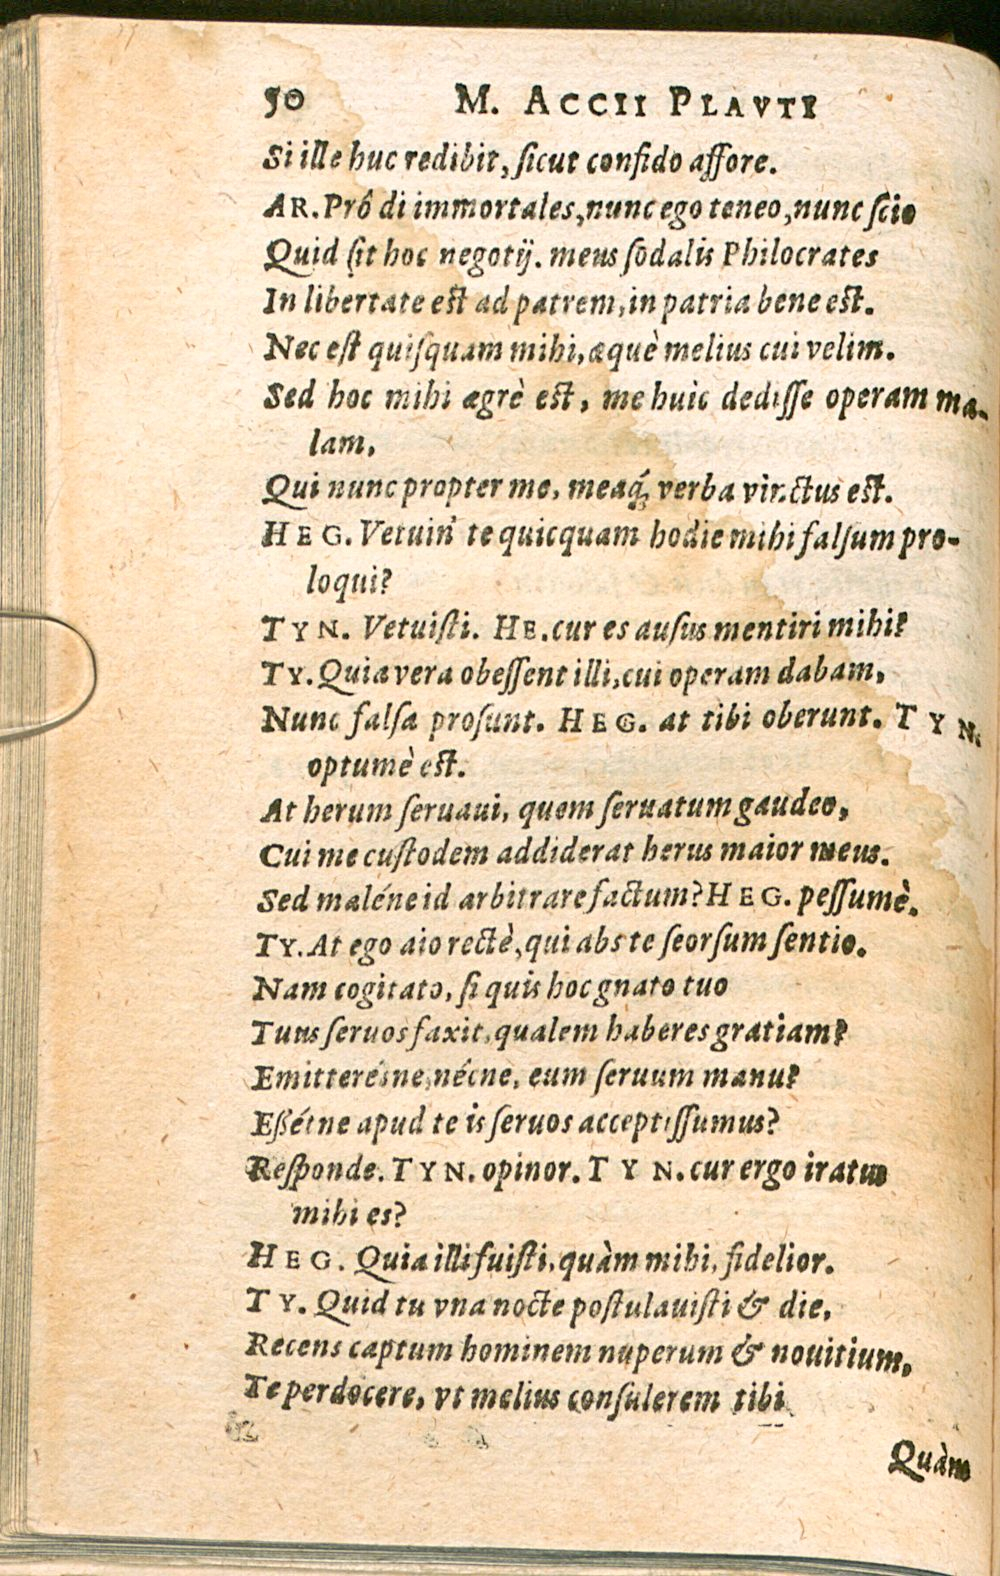 50 M. ACCII PLAVTI
Si ille huc redibit, ſicut confido affore.
AR. Prô di immortales, nunc ego teneo, nunc ſcio
Quid ſit hoc negotij. meus ſodalis Philocrates
In libertate eſt ad patrem, in patria bene eſt.
Nec eſt quiſquam mihi, æquè melius cui velim.
Sed hoc mihi ægrè eſt, me huic dediſſe operam ma-
lam,
Qui nunc propter me, meaq́; verba vinctus eſt.
HEG. Vetuin' te quicquam hodie mihi falſum pro-
loqui?
TYN. Vetuiſti. HE. cur es auſus mentiri mihi?
TY. Quia vera obeſſent illi, cui operam dabam,
Nunc falſa proſunt. HEG. at tibi oberunt. TYN.
optumè eſt.
At herum ſeruaui, quem ſeruatum gaudeo,
Cui me cuſtodem addiderat herus maior meus.
Sed maléne id arbitrare factum? HEG. peſſumè.
TY. At ego aio rectè, qui abs te ſeorſum ſentio.
Nam cogitato, ſi quis hoc gnato tuo
Tuus ſeruos faxit, qualem haberes gratiam?
Emitterésne, nécne, eum ſeruum manu?
Eßétne apud te is ſeruos acceptiſſumus?
Reſponde. TYN. opinor. TYN. cur ergo iratus
mihi es?
HEG. Quia illi fuiſti, quàm mihi, fidelior.
TY. Quid tu vna nocte poſtulauiſti & die,
Recens captum hominem nuperum & nouitium,
Te perdocere, vt melius conſulerem tibi
Quàm